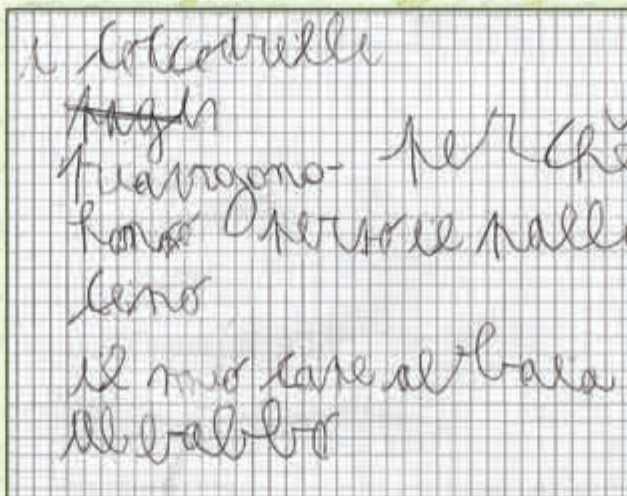 i coccodrilli
piangono perchè
hanno perso il pallo
cino
il mio cane abbaia
al babbo